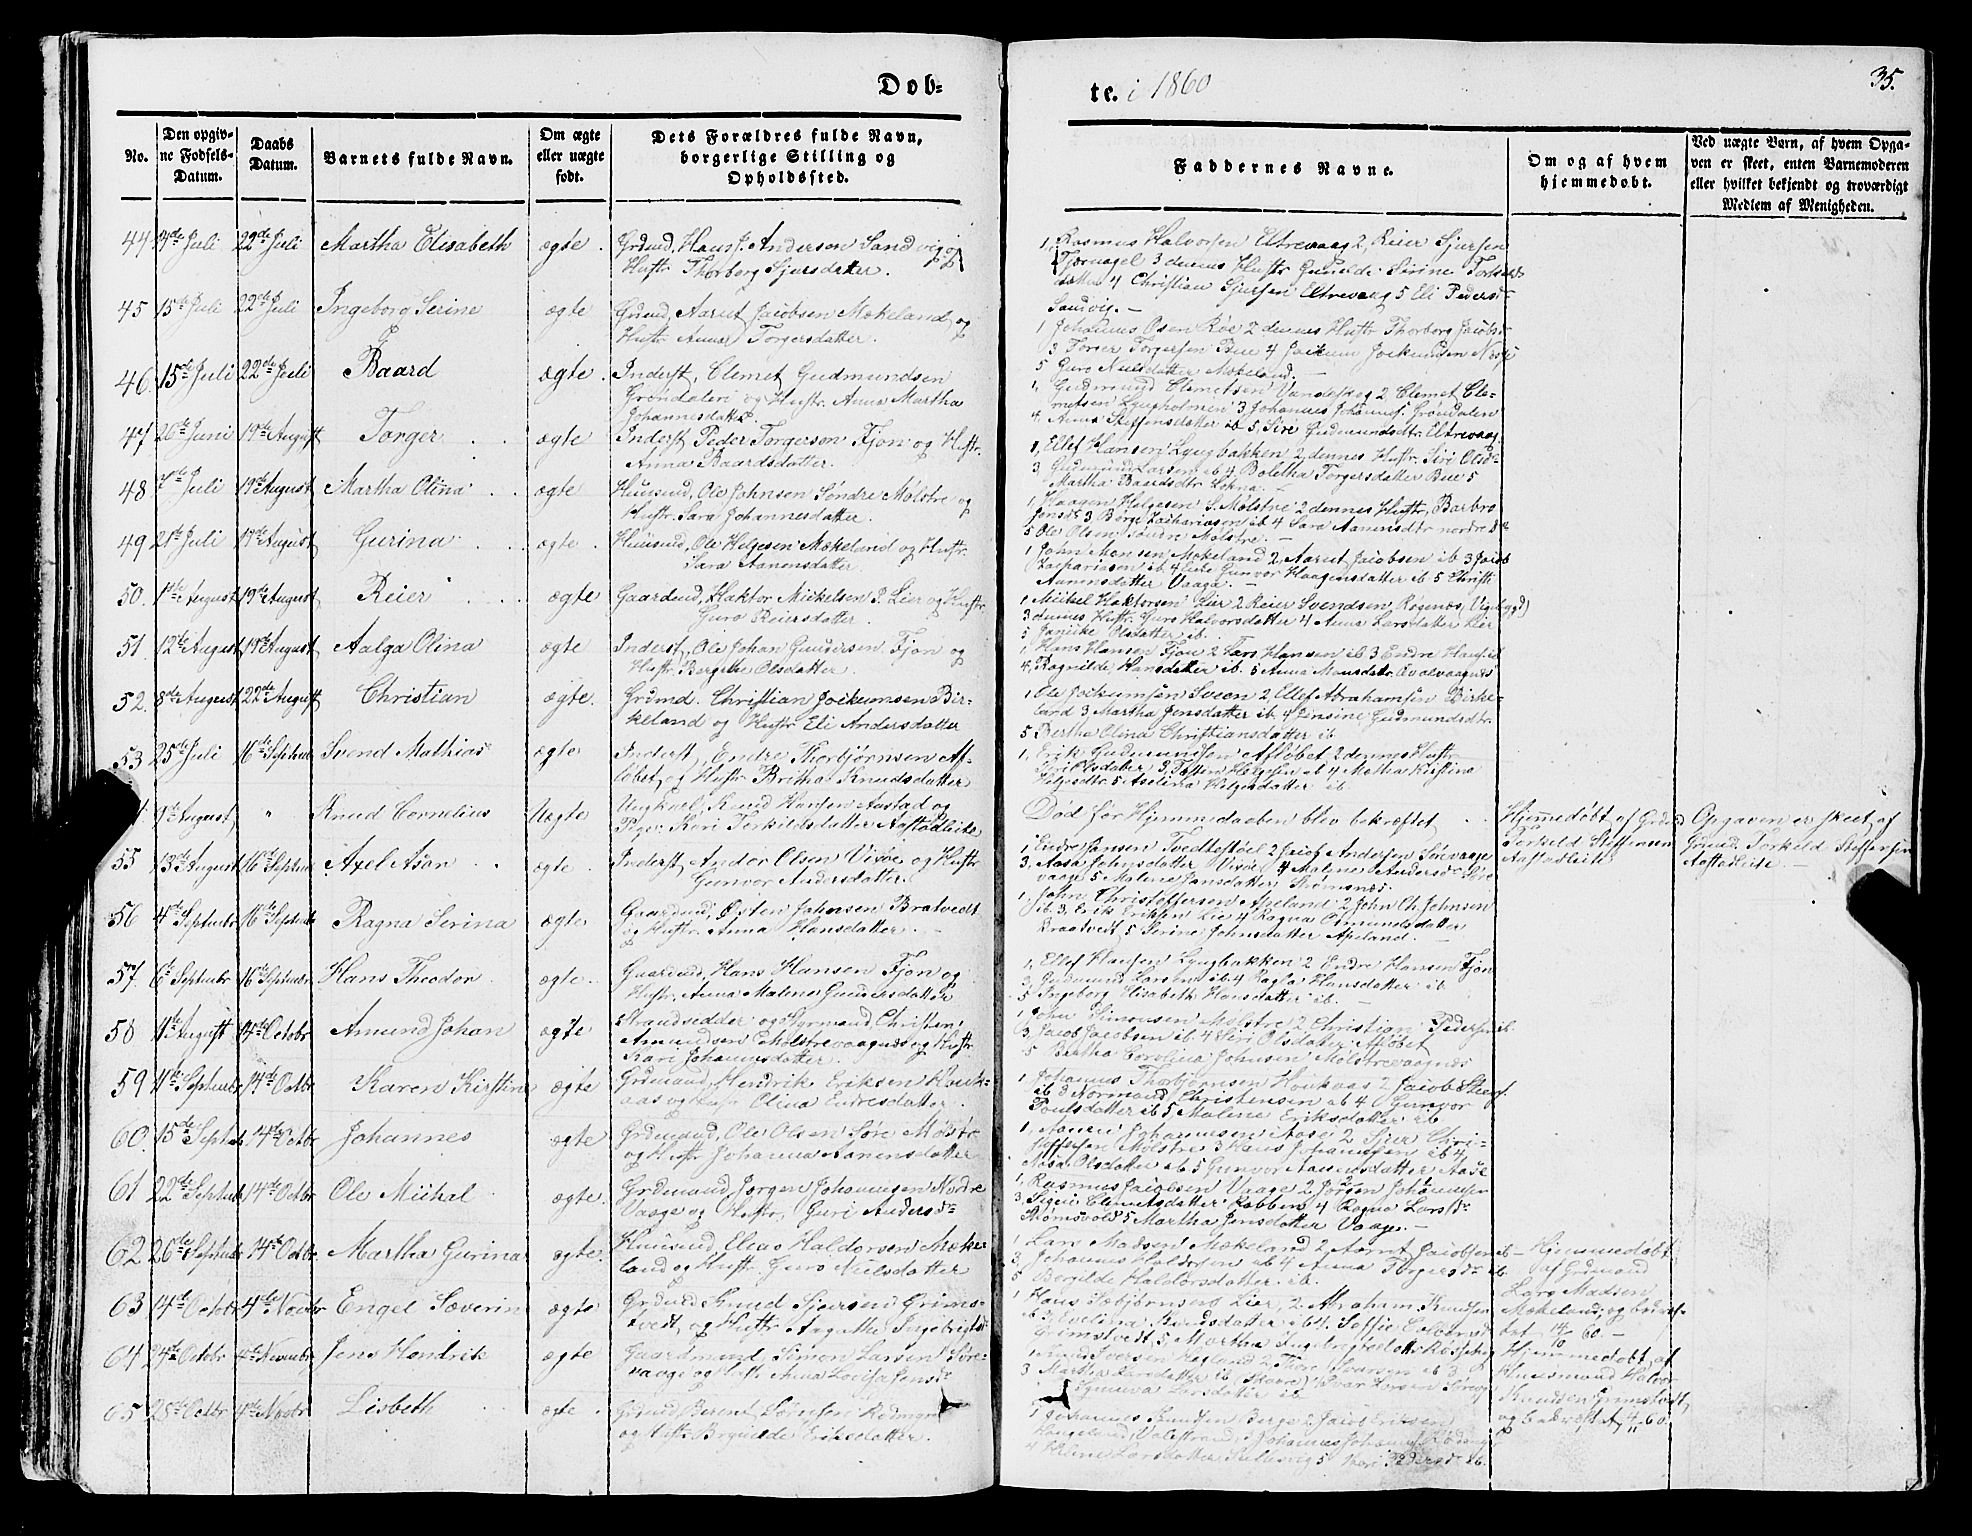 Dob-
te. i 1860
35.
No.
Den opgiv-
ne Fodsels-
Datum.
Daabs
Datum.
Barnets fulde Navn.
Om ægte
eller uægte
fodt.
Dets Forældres fulde Navn,
borgerlige Stilling og
Opholdssted.
Faddernes Navne.
Om og af hvem
hjemmedobt.
Ved uægte Børn, af hvem Opga-
ven er skeet, enten Barnemoderen
eller hvilket bekjendt og troværdigt
Medlem af Menigheden.
44 4de Juli 22de Juli Martha Elisabeth ægte. Grdmd, Hans J. Andersen Sandvig og
Hustr Thorborg Sjursdatter.
1, Rasmus Halvorsen Eltrevaag 2, Reier Sjursen
Tjernagel 3 dennes Hustr Gunilde Sirine
datter 4 Christian Sjursen Eltrevaag 5 Eli Pedersd
Sandvig. –
45 15de Juli 22de Juli Ingeborg Serine ægte Grdmd, Aarut Jacobsen Mækeland og
Hustr Anna Torgersdatter.
1 Johannes Osen Røe 2 dennes Hustr Thorborg Jacobsd
3 Torger Torgersen Bue 4 Jockum Jockumsen
5 Guro Nielsdatter Mækeland. –
46. 15de Juli 22de Juli Baard ægte. Inderst, Clemet Gudmundsen
Grøndalen og Hustr. Anna Martha
Johannesdatter
1, Gudmund Clemetsen Vandskog 2 Clemet Cle-
metsen Lyngholmen 3 Johannes Johannes. Grøndalen
4. Anna Steffensdatter ib 5, Sire Gudmundsdtr. Eltrevaag.
47 20de Juni 19de August Torger ægte Inderst Peder Torgersen Fjon og Hustr.
Anna Baardsdatter.
1, Ellef Hansen Lyngbakken 2, dennes Hustr. Siri Olsd
3 Gudmund Larsen ib 4 Boletha Torgersdatter Bue 5
Martha Baardsdtr Løkna. –
48 Juli 19de August Martha Olina ægte Huusmd, Ole Johnsen Søndre Mølstre og
Hustr. Sara Johannesdatter.
1, Haagen Helgesen S. Mølstre 2 dennes Hustr, Barbro
Jonsd 3 Børge Zachariasen ib 4 Sara Aanensdtr nordre
5 Ole Olsen Mølstre. –
49 21de Juli 19de August Gurina ægte Huusmd, Ole Helgesen Mækeland og Hustr.
Sara Aanensdatter
1 John Monsen Mækeland 2, Aarut Jacobsen ib 3 Jacob
Zachariasen ib 4 Gunvor Haagensdatter ib 5 Christi
Aanensdatter Vaage. –
50. 1ste August 19de August Reier ægte Gaardmd, Haktor Mickelsen Lier og Hustr,
Guro Reiersdatter.
1, Mikkel Haktorsen Lier 2 Reier Svendsen, Røgenæs, Vigebygd)
3 dennes Hustr. Guro Halvorsdatter 4 Anna Larsdatter Lier
5 Janike Olsdatter ib.
51. 12te August 19de August Aalga Olina ægte Inderst, Ole Johan Gundersen Fjon og
Hustr. Bergithe Olsdatter.
1 Hans Hansen Fjon 2 Lars Hansen ib 3 Endre Hans. ib
4, Ragnilde Hansdatter ib. 5 Anna Monsdatter
52. 8de August 22de August Christian ægte. Grdmd. Christian Jockumsen Bir-
keland og Hustr Eli Andersdatter
1, Ole Jockumsen Sveen 2, Ellef Abrahamsen Birke-
land 3 Martha Jensdatter ib 4 Zinsine Gudmundsdtr.
5 Bertha Olina Christiansdatter ib
53 25de Juli 16de Septembr Svend Mathias ægte Inderst, Endre Thorbjørnsen Af-
løbet og Hustr Britha Knudsdatter
1, Erik Gudmundsen Afløbet 2 dennes Hustr
Siri Olsdatter 3, Torsten Helgesen ib 4 Metha Kirstine
Helgesdtr 5 Aselina Helgesdatter ib
1ste August " Knud Cornelius Uægte Ungkael, Knud Hansen Aastad og
Pige Kari Torkildsdatter Aastadleite
Død før Hjemmedaaben blev bekræftet
Hjemmedøbt af Grdmd
Torkeld Steffensen
Aastadleite
Opgaven er skeet af
Grdmd. Torkeld Steffensen
Aastadleite. –
55 13de August 16de Septbr Axel Asan ægte Inderst, Andor Olsen Vixøe og Hustr
Gunvor Andersdatter.
1 Endre Hansen Tvedtestøel 2 Jacob Andersen Sørevaage
3, Aasa Johnsdatter Vixøe 4 Malene Andersd Søre
vaage 5 Malene Hansdatter Strømsnæs.
56 4de Septembr 16de Septembr Ragna Serina ægte Gaardmd, Østen Johnsen Bratvedt
og Hustr. Anna Hansdatter.
1, John Christoffersen Apeland 2 John Ch. Johnsen
ib. 3, Erik Eriksen Lie 4 Ragna Omundsdatter
Braatvedt 5 Serine Johnsdatter Apeland. –
57. 6te Septembr 16de Septembr Hans Theodor ægte. Gaardmd, Hans Hansen Fjon og
Hustr, Anna Malene Gundersdatter
1, Ellef Hansen Lyngbakken 2 Endre Hansen Fjon
3, Gudmund Larsen ib 4 Ragla Hansdatter ib
5 Ingeborg Elisabeth Hansdatter ib. –
58 11te August 14de Octobr Amund Johan ægte Strandsedder og Styrmand, Christen
Amundsen Mølstrevaagnes og Hustr.
Kari Johannesdatter.
1 John Simonsen Mølstre 2 Christian Pedersen ib.
3, Jacob Jacobsen ib 4 Siri Olsdatter Afløbet
5 Bertha Carolina Johnsen Mølstrevaagnes
59 11te Septembr 14de Octbr Karen Kirstine ægte Grdmand, Hendrik Eriksen Houk-
aas og Hustr Olina Endresdatter.
1, Johannes Thorbjørnsen Houkaas 2 Jacob
ib 3 Normand Christensen ib 4 Gunvor
Poulsdatter ib 5 Malena Eriksdatter ib
60. 15de Septbr. 14de Octbr Johannes ægte Grdmand, Ole Olsen Søre Mølstre
og Hustr Johanna Aanensdatter
1, Johannesen Aase 2 Sjur Chri-
stoffersen Mølstre 3 Hans Johannesen ib 4
Aasa Olsdatter ib 5 Gunvor Aanensdatter Aase
61 22de Septbr 14de Octbr Ole Mikhal ægte. Grdmand, Jørgen Johannesen Nordre
Vaage og Hustr, Guri Andersd
1, Rasmus Jacobsen Vaage 2 Jørgen Johannesen
3, Clemetsdatter Robben 4 Ragna Larsd
Strømsvold 5 Martha Jonsdatter Vaage. –
62 26de Septbr 14de Octbr Martha Gurina ægte. Huusmd, Elias Haldorsen Mæke-
land og Hustr Guro Nielsdatter
1 Lars Madsen Mækeland 2, Aarnt Jacobsen ib
3, Johannes Haldorsen ib 4 Anna Torgersd ib.
5 Bergilde Haldorsdatter. ib.
Hjemmedøbt
af Grdmand
Lars Madsen
Mækeland, og bekræf-
tet 14/10 60 –
63 14de Octobr 4de Novbr Engel Severin ægte Grdmd Knud Sjursen Grims-
tvedt, og Hustr Aagathe Ingebrigtsd
1 Hans Sæbjørnsen Lier, 2. Abraham Knudsen
ib 3, Evelina Knudsdatter ib 4. Soffie
Grimstvedt, 5, Martha Ingebrigtsdatter
64 24de Octobr 4de Novembr Jens Hendrik ægte Gaardmand, Simon Larsen Søre-
vaage og Hustr Anna
3 Martha Larsdatter ib
Larsdatter ib
Hjemmedøbt af
Huusmand Halvor
Knudsen Grimstvedt,
og bekræftet, 4/11 60
65 28de Octbr 4de Novbr Lisbeth ægte. Grdmd Berent
og Hustr Brynilde Eriksdatter.
1 Johannes Knudsen Berge 2 Jacob Eriksen
Haugeland, Valestrand, 3 Johannes Johannes.
4 Helene Larsdatter 5 Kari Pedersd ib.